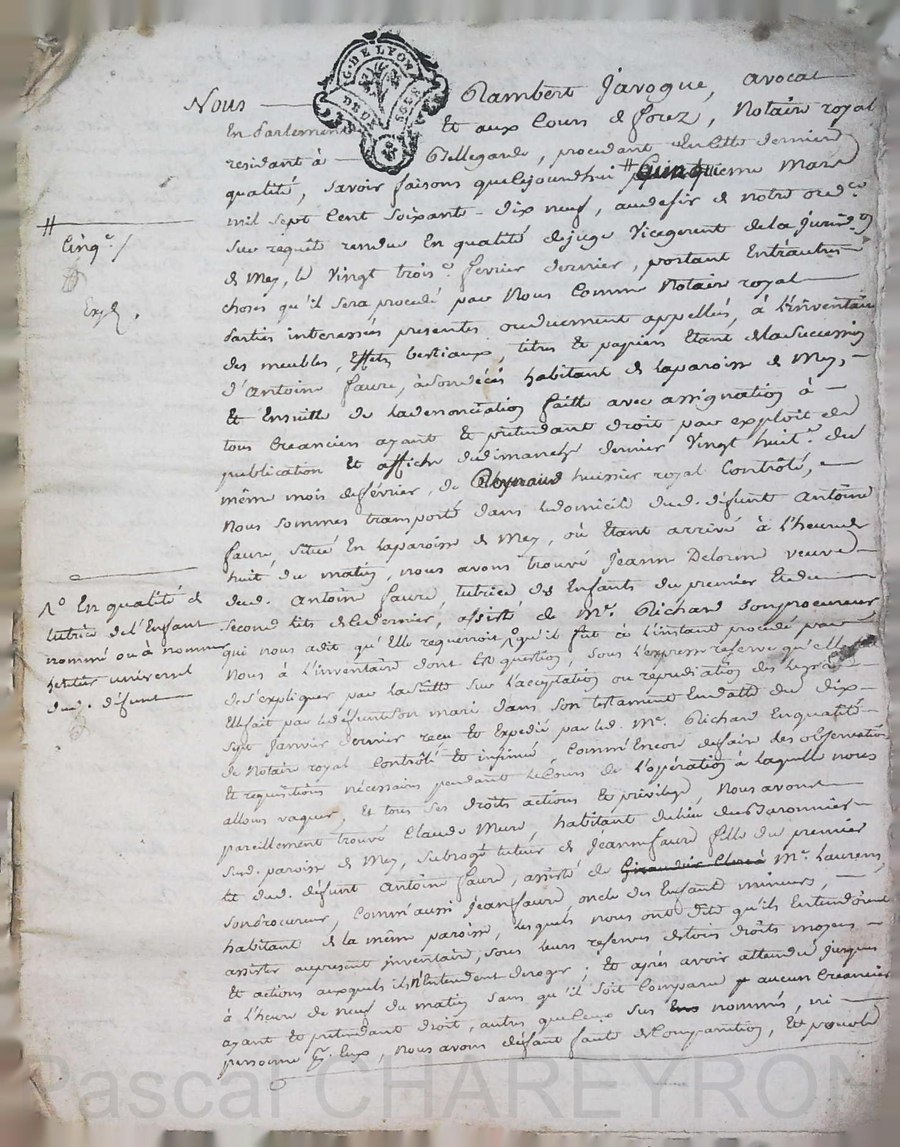 G. DE LYON
DEUX SOLS
Nous Rambert Javogue, avocat
En Parlement Et aux Cours de forez, Notaire royal
residant à Bellegarde, procedant En Cette derniere
qualité, savoir faisons que Cejourdhui # Cinquieme Mars
mil sept Cent soixante-dix neuf, au desir de notre ord.ce
sur requête rendue En qualité de juge Vicegerent de la Jurid.on
de Mey, le Vingt trois e. fevrier dernier, portant Entrautres
choses qu'il sera procedé par Nous Comme Notaire royal
Parties interessées presentes ou duement appellées, à L'inventaire
des meubles, Effets bestiaux, titres et papiers Etant de la Succession
d'Antoine faure, à son décés habitant de la paroisse de Mey,
Et Ensuitte de la denonciation faitte avec assignation à
tous Creanciers ayant Et pretendant droit par exploit de
publication Et affiche du dimanche dernier Vingt huit e. du
même mois de fevrier, de Reynaud huissier royal Controlé,
Nous sommes transporté dans le domicile dud. défunt Antoine
faure, situé En la paroisse de Mey, où Etant arrivé à L'heure de
huit du matin, nous avons trouvé Jeanne Delorme veuve
dud. Antoine faure tutrice des Enfants du premier Et du
second lits de Ce dernier, assisté de Me. Richard son procureur
qui nous a dit qu'Elle requerroit 1° qu'il fut à L'instant procedé par
Nous à L'inventaire dont Est question, sous L'expresse reserve qu'elle
de s'expliquer par la suitte sur L'acceptation ou repudiation des
Elle fait par le défunt Son mari dans Son testament En datte du dix
sept Janvier dernier reçu Et Expedié par led. Me. Richard En qualité
de Notaire royal Controlé Et insinué Comm'Encore de faire des observations
Et requisitions nécessaires pendant le Cours de L'opération à laquelle nous
allons vaquer, Et tous ses droits actions Et privilege Nous avons
pareillement trouvé Claude Mure, habitant du lieu du
Sud. paroisse de Mey, Subrogé tuteur de Jeanne faure fille du premier
lit dud. défunt Antoine faure, assisté de Me. Laurens
son procureur, Comm'aussi Jean faure, oncle des Enfant mineurs,
habitant de la même paroisse, lesquels nous ont dit qu'ils Entendoient
assister au present inventaire, sous leurs reserves de tous droits moyens
Et actions auxquels ils n'Entendent deroger; Et après avoir attendu jusques
à L'heure de neuf du matin sans qu'il soit Comparu aucun Creancier
ayant Et pretendant droit, autres que Ceux sus nommés, ni
personne pr. Eux, Nous avons defaut faute de Comparution, Et pour le
#
Cinqe. /
1° En qualité de
tutrice de L'Enfant
nommé ou à nommer
heritier universel
dud. défunt
Pascal CHAREYRON